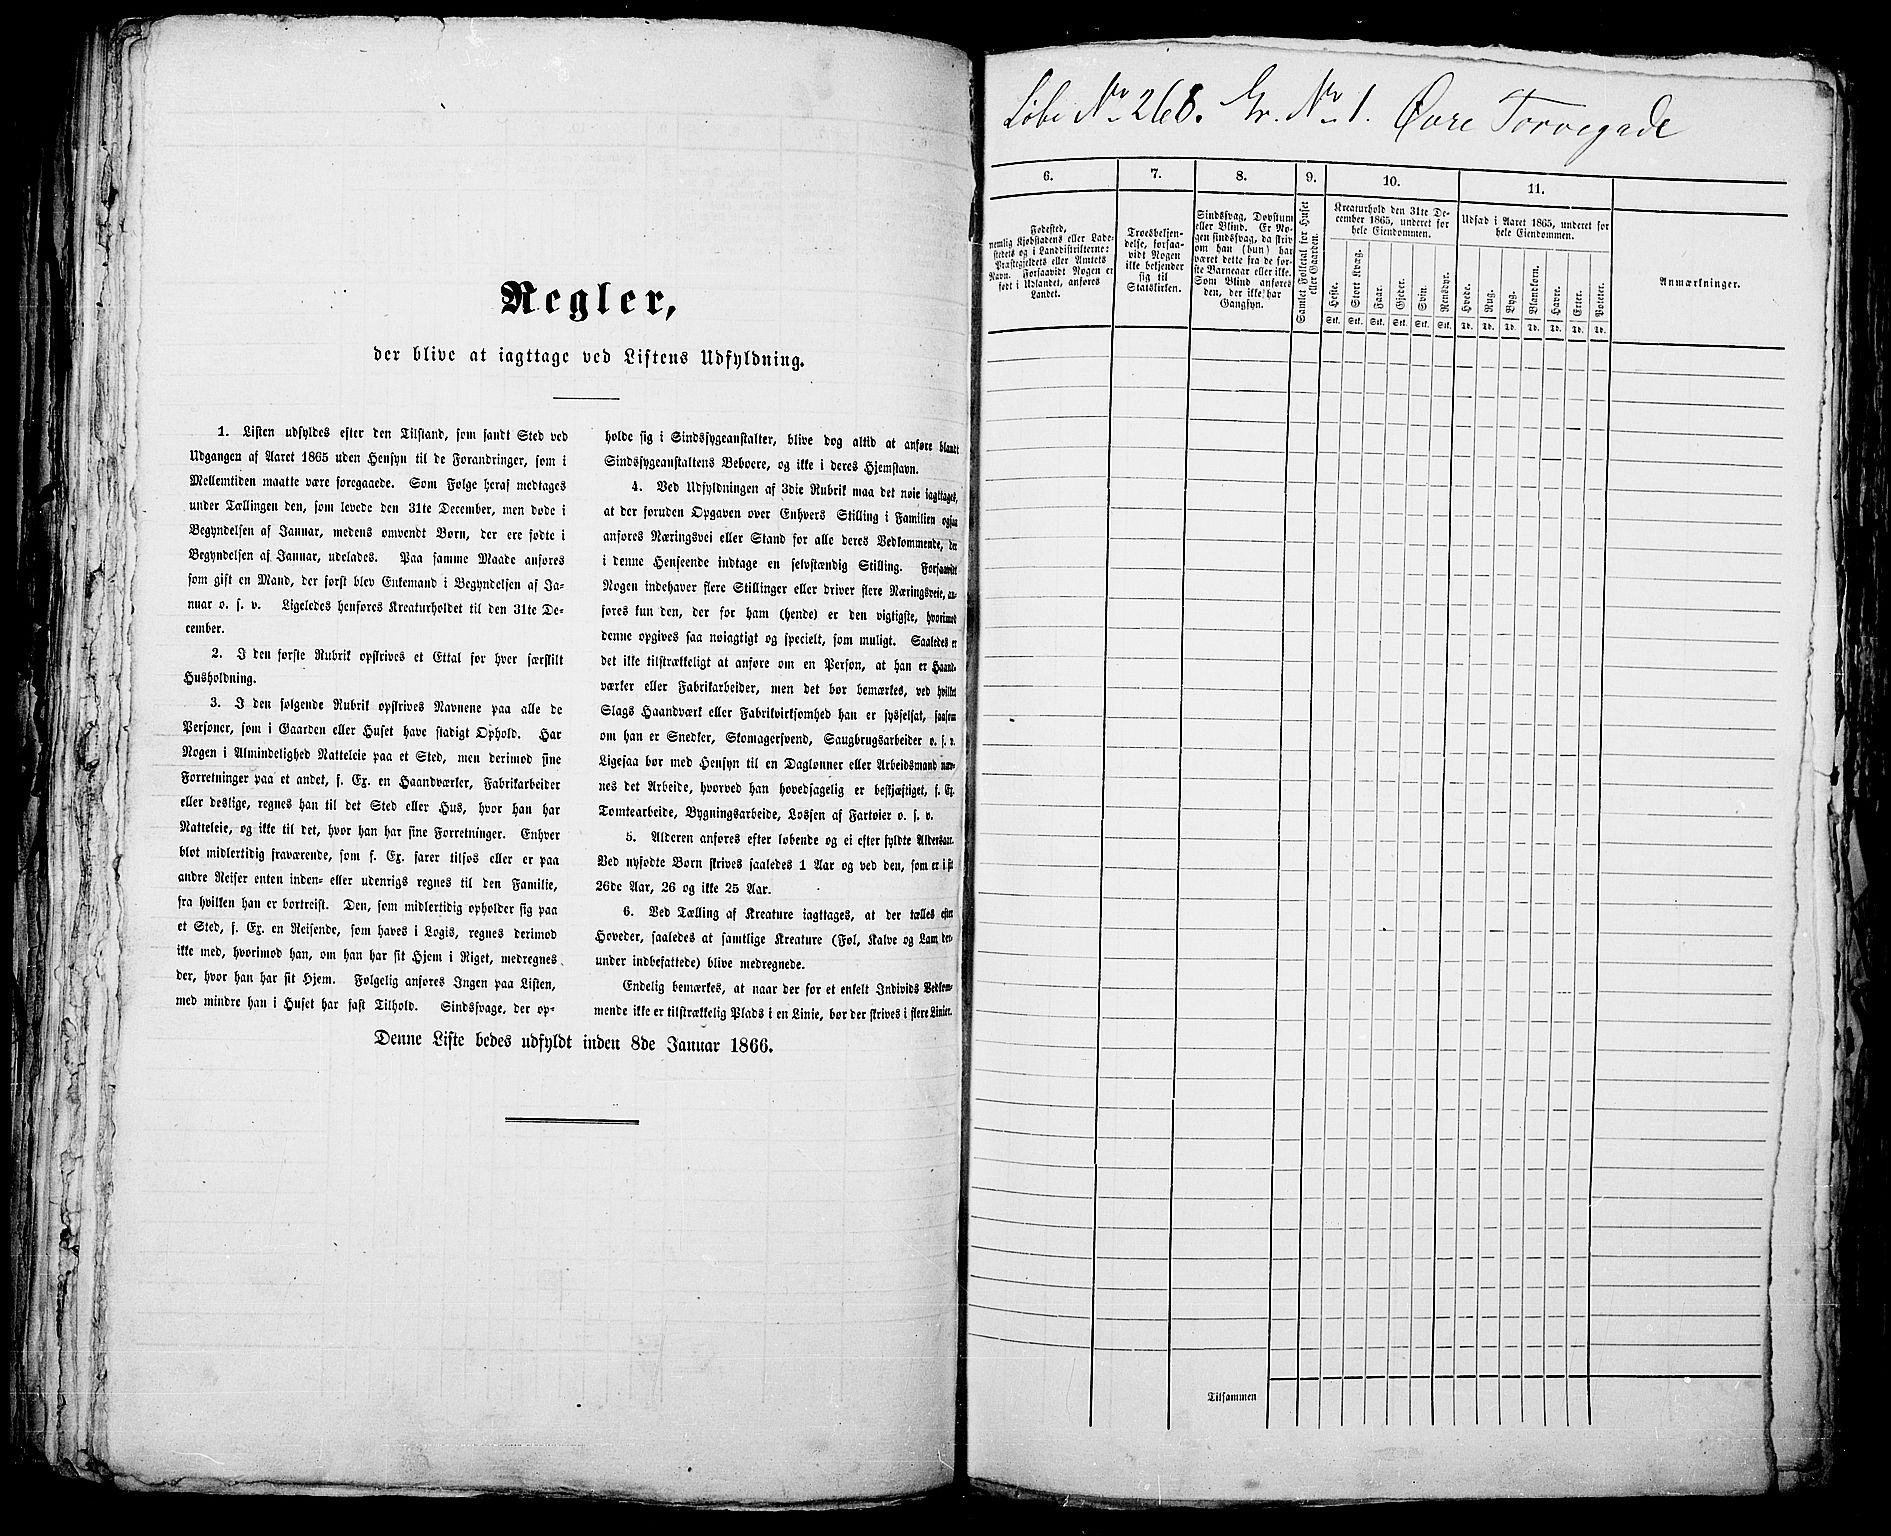 Regler,
der blive at iagttage ved Listens Udfyldning.
1. Listen udfyldes efter den Tilstand, som fandt Sted ved
Udgangen af Aaret 1865 uden Hensyn til de Forandringer, som i
Mellemtiden maatte være foregaaede. Som Følge heraf medtages
under Tællingen den, som levede den 31te December, men døde i
Begyndelsen af Januar, medens omvendt Børn, der ere fødte i
Begyndelsen af Januar, udelades. Paa samme Maade anføres
som gift en Mand, der først blev Enkemand i Begyndelsen af Ja-
nuar o. s. v. Ligeledes henføres Kreaturholdet til den 31te De-
cember.
2. I den første Rubrik opskrives et Ettal for hver særskilt
Husholdning.
3. I den følgende Rubrik opskrives Navnene paa alle de
Personer, som i Gaarden eller Huset have stadigt Ophold. Har
Nogen i Almindelighed Natteleie paa et Sted, men derimod sine
Forretninger paa et andet, f. Ex. en Haandværker, Fabrikarbeider
eller deslige, regnes han til det Sted eller Hus, hvor han har
Natteleie, og ikke til det, hvor han har sine Forretninger. Enhver
blot midlertidig fraværende, som f. Ex. farer tilsøs eller er paa
andre Reiser enten inden- eller udenrigs regnes til den Familie,
fra hvilken han er bortreist. Den, som midlertidig opholder sig paa
et Sted, f. Ex. en Reisende, som haves i Logis, regnes derimod
ikke med, hvorimod han, om han har sit Hjem i Riget, medregnes
der, hvor han har sit Hjem. Følgelig anføres Ingen paa Listen,
med mindre han i Huset har fast Tilhold. Sindssvage, der op-
holde sig i Sindssygeanstalter, blive dog altid at anføre blandt
Sindssygeanstaltens Beboere, og ikke i deres Hjemstavn.
4. Ved Udfyldningen af 3die Rubrik maa det nøie iagttages,
at der foruden Opgaven over Enhvers Stilling i Familien ogsaa
anføres Næringsvei eller Stand for alle deres Vedkommende, der
i denne Henseende indtage en selvstændig Stilling. Forsaavidt
Nogen indehaver flere Stillinger eller driver flere Næringsveie, an-
føres kun den, der for ham (hende) er den vigtigste, hvorimod
denne opgives saa nøiagtigt og specielt, som muligt. Saaledes er
det ikke tilstrækkeligt at anføre om en Person, at han er Haand-
værker eller Fabrikarbeider, men det bør bemærkes, ved hvilket
Slags Haandværk eller Fabrikvirksomhed han er sysselsat, saasom
om han er Snedker, Skomagersvend, Saugbrugsarbeider o. s. v.
Ligesaa bør med Hensyn til en Daglønner eller Arbeidsmand næv-
nes det Arbeide, hvorved han hovedsagelig er beskjæftiget, f. Ex.
Tomtearbeide, Bygningsarbeide, Lossen af Fartøier o. s. v.
5. Alderen anføres efter løbende og ei efter fyldte Aldersaar.
Ved nyfødte Børn skrives saaledes 1 Aar og ved den, som er i sit
26de Aar, 26 og ikke 25 Aar.
6. Ved Tælling af Kreature iagttages, at der tælles efter
Hoveder, saaledes at samtlige Kreature (Føl, Kalve og Lam der-
under indbefattede) blive medregnede.
Endelig bemærkes, at naar der for et enkelt Individs Vedkom-
mende ikke er tilstrækkelig Plads i en Linie, bør der skrives i flere Linier.
Denne Liste bedes udfyldt inden 8de Januar 1866.
Løbe Nr 268. Gr. Nr 1. Øvre Torvegade
6. 7. 8. 9. 10. 11.
Fødested,
nemlig Kjøbstadens eller Lade-
stedets og i Landdistrikterne:
Præstegjeldets eller Amtets
Navn. Forsaavidt Nogen er
født i Udlandet, anføres
Landet.
Troesbekjen-
delse, forsaa-
vidt Nogen
ikke bekjender
sig til
Statskirken.
Sindssvag, Døvstum
eller Blind. Er No-
gen sindssvag, da skriv
om han (hun) har
været dette fra de før-
ste Barneaar eller ikke.
Som Blind anføres
den, der ikke har
Gangsyn.
Samlet Folketal for Huset
eller Gaarden.
Kreaturhold den 31te De-
cember 1865, underet for
hele Eiendommen.
Heste. Stort Kvæg. Faar. Gjeder. Svin. Rensdyr.
Stk. Stk. Stk. Stk. Stk. Stk.
Udsæd i Aaret 1865, underet for
hele Eiendommen.
Hvede. Rug. Byg. Blandkorn. Havre. Erter. Poteter.
Td. Td. Td. Td. Td. Td. Td.
Anmærkninger.
Tilsammen